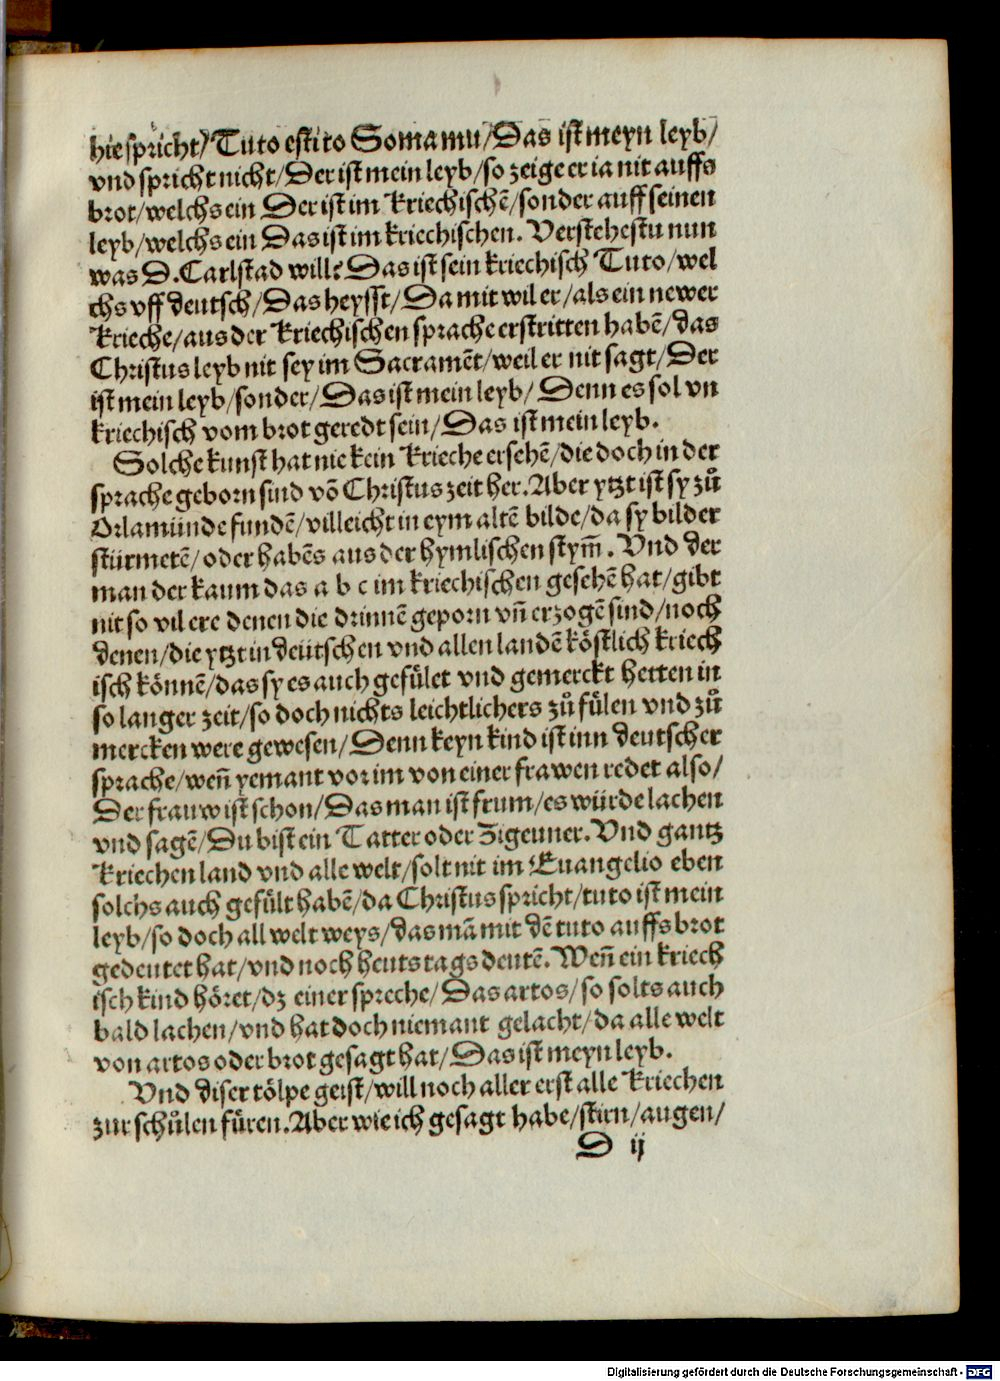 hie spricht/ Tuto esti to Soma mu/ Das ist meyn leyb/
vnd spricht nicht/ Der ist mein leyb/ so zeige er ia nit auffs
brot/ welchs ein Der ist im Kriechischē/ sonder auff seinen
leyb/ welchs ein Das ist im kriechischen. Verstehestu nun
was D. Carlstad will? Das ist sein kriechisch Tuto/ wel
chs vff deutsch/ Das heysst/ Da mit wil er/ als ein newer
Krieche/ aus der Kriechischen sprache erstritten habē/ das
Christus leyb nit sey im Sacramēt/ weil er nit sagt/ Der
ist mein leyb/ sonder/ Das ist mein leyb/ Denn es sol vn
kriechisch vom brot geredt sein/ Das ist mein leyb.
Solche kunst hat nie kein Krieche ersehē/ die doch in der
sprache geborn sind vō Christus zeit her. Aber ytzt ist sy zů
Orlamünde fundē/ villeicht in eym altē bilde/ da sy bilder
stürmetē/ oder habēs aus der hymlischen stym̄. Vnd der
man der kaum das a b c im kriechischen gesehē hat/ gibt
nit so vil ere denen die drinnē geporn vn̄ erzogē sind/ noch
denen/ die ytzt in deütschen vnd allen landē köstlich kriech
isch könnē/ das sy es auch gefület vnd gemerckt hetten in
so langer zeit/ so doch nichts leichtlichers zů fülen vnd zů
mercken were gewesen/ Denn keyn kind ist inn deutscher
sprache/ wen̄ yemant vor im von einer frawen redet also/
Der frauw ist schon/ Das man ist frum/ es würde lachen
vnd sagē/ Du bist ein Tatter oder Zigeuner. Vnd gantz
Kriechen land vnd alle welt/ solt nit im Euangelio eben
solchs auch gefült habē/ da Christus spricht/ tuto ist mein
leyb/ so doch all welt weys/ das mā mit dē tuto auffs brot
gedeutet hat/ vnd noch heuts tags deutē. Wen̄ ein kriech
isch kind höret/ dz einer spreche/ Das artos/ so solts auch
bald lachen/ vnd hat doch niemant gelacht/ da alle welt
von artos oder brot gesagt hat/ Das ist meyn leyb.
Vnd diser tölpe geist/ will noch aller erst alle Kriechen
zur schůlen füren. Aber wie ich gesagt habe/ stirn/ augen/
D ij
Digitalisierung gefördert durch die Deutsche Forschungsgemeinschaft - DFG